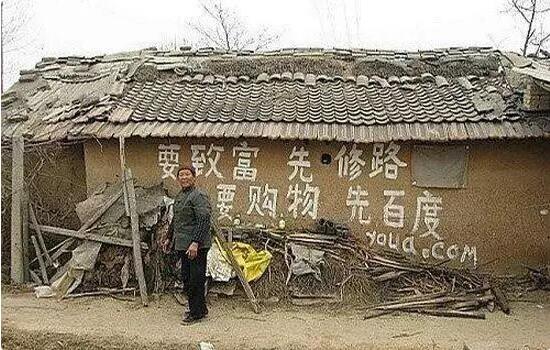 要致富 先修路
要购物 先百度
youa.com